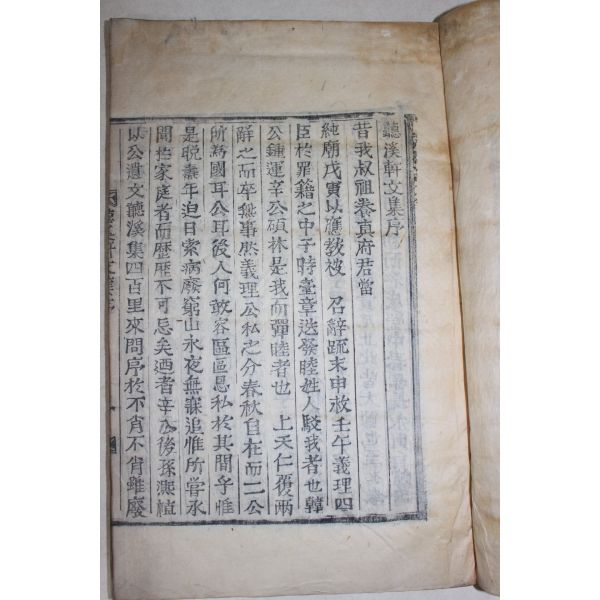 聽溪軒文集序
昔我叔祖養真府君當
純廟戊寅以應敎被 召辭䟽末申救壬午義理四
臣於罪籍之中于時臺章迭發睦姓人駁我者也韓
公鍾運辛公碩林是我而彈睦者也 上天仁覆兩
辭之而卒無事然義理公私之分春秋自在而二公
所爲國耳公耳後人何敢容區區恩私於其間乎惟
是晩壽年迫日索病廢窮山永夜無寐追惟所嘗承
聞於家庭者而歷歷不可忘矣廼者辛公後孫濝植
以公遺文聽溪集四百里來問序於不肖不肖雖廢